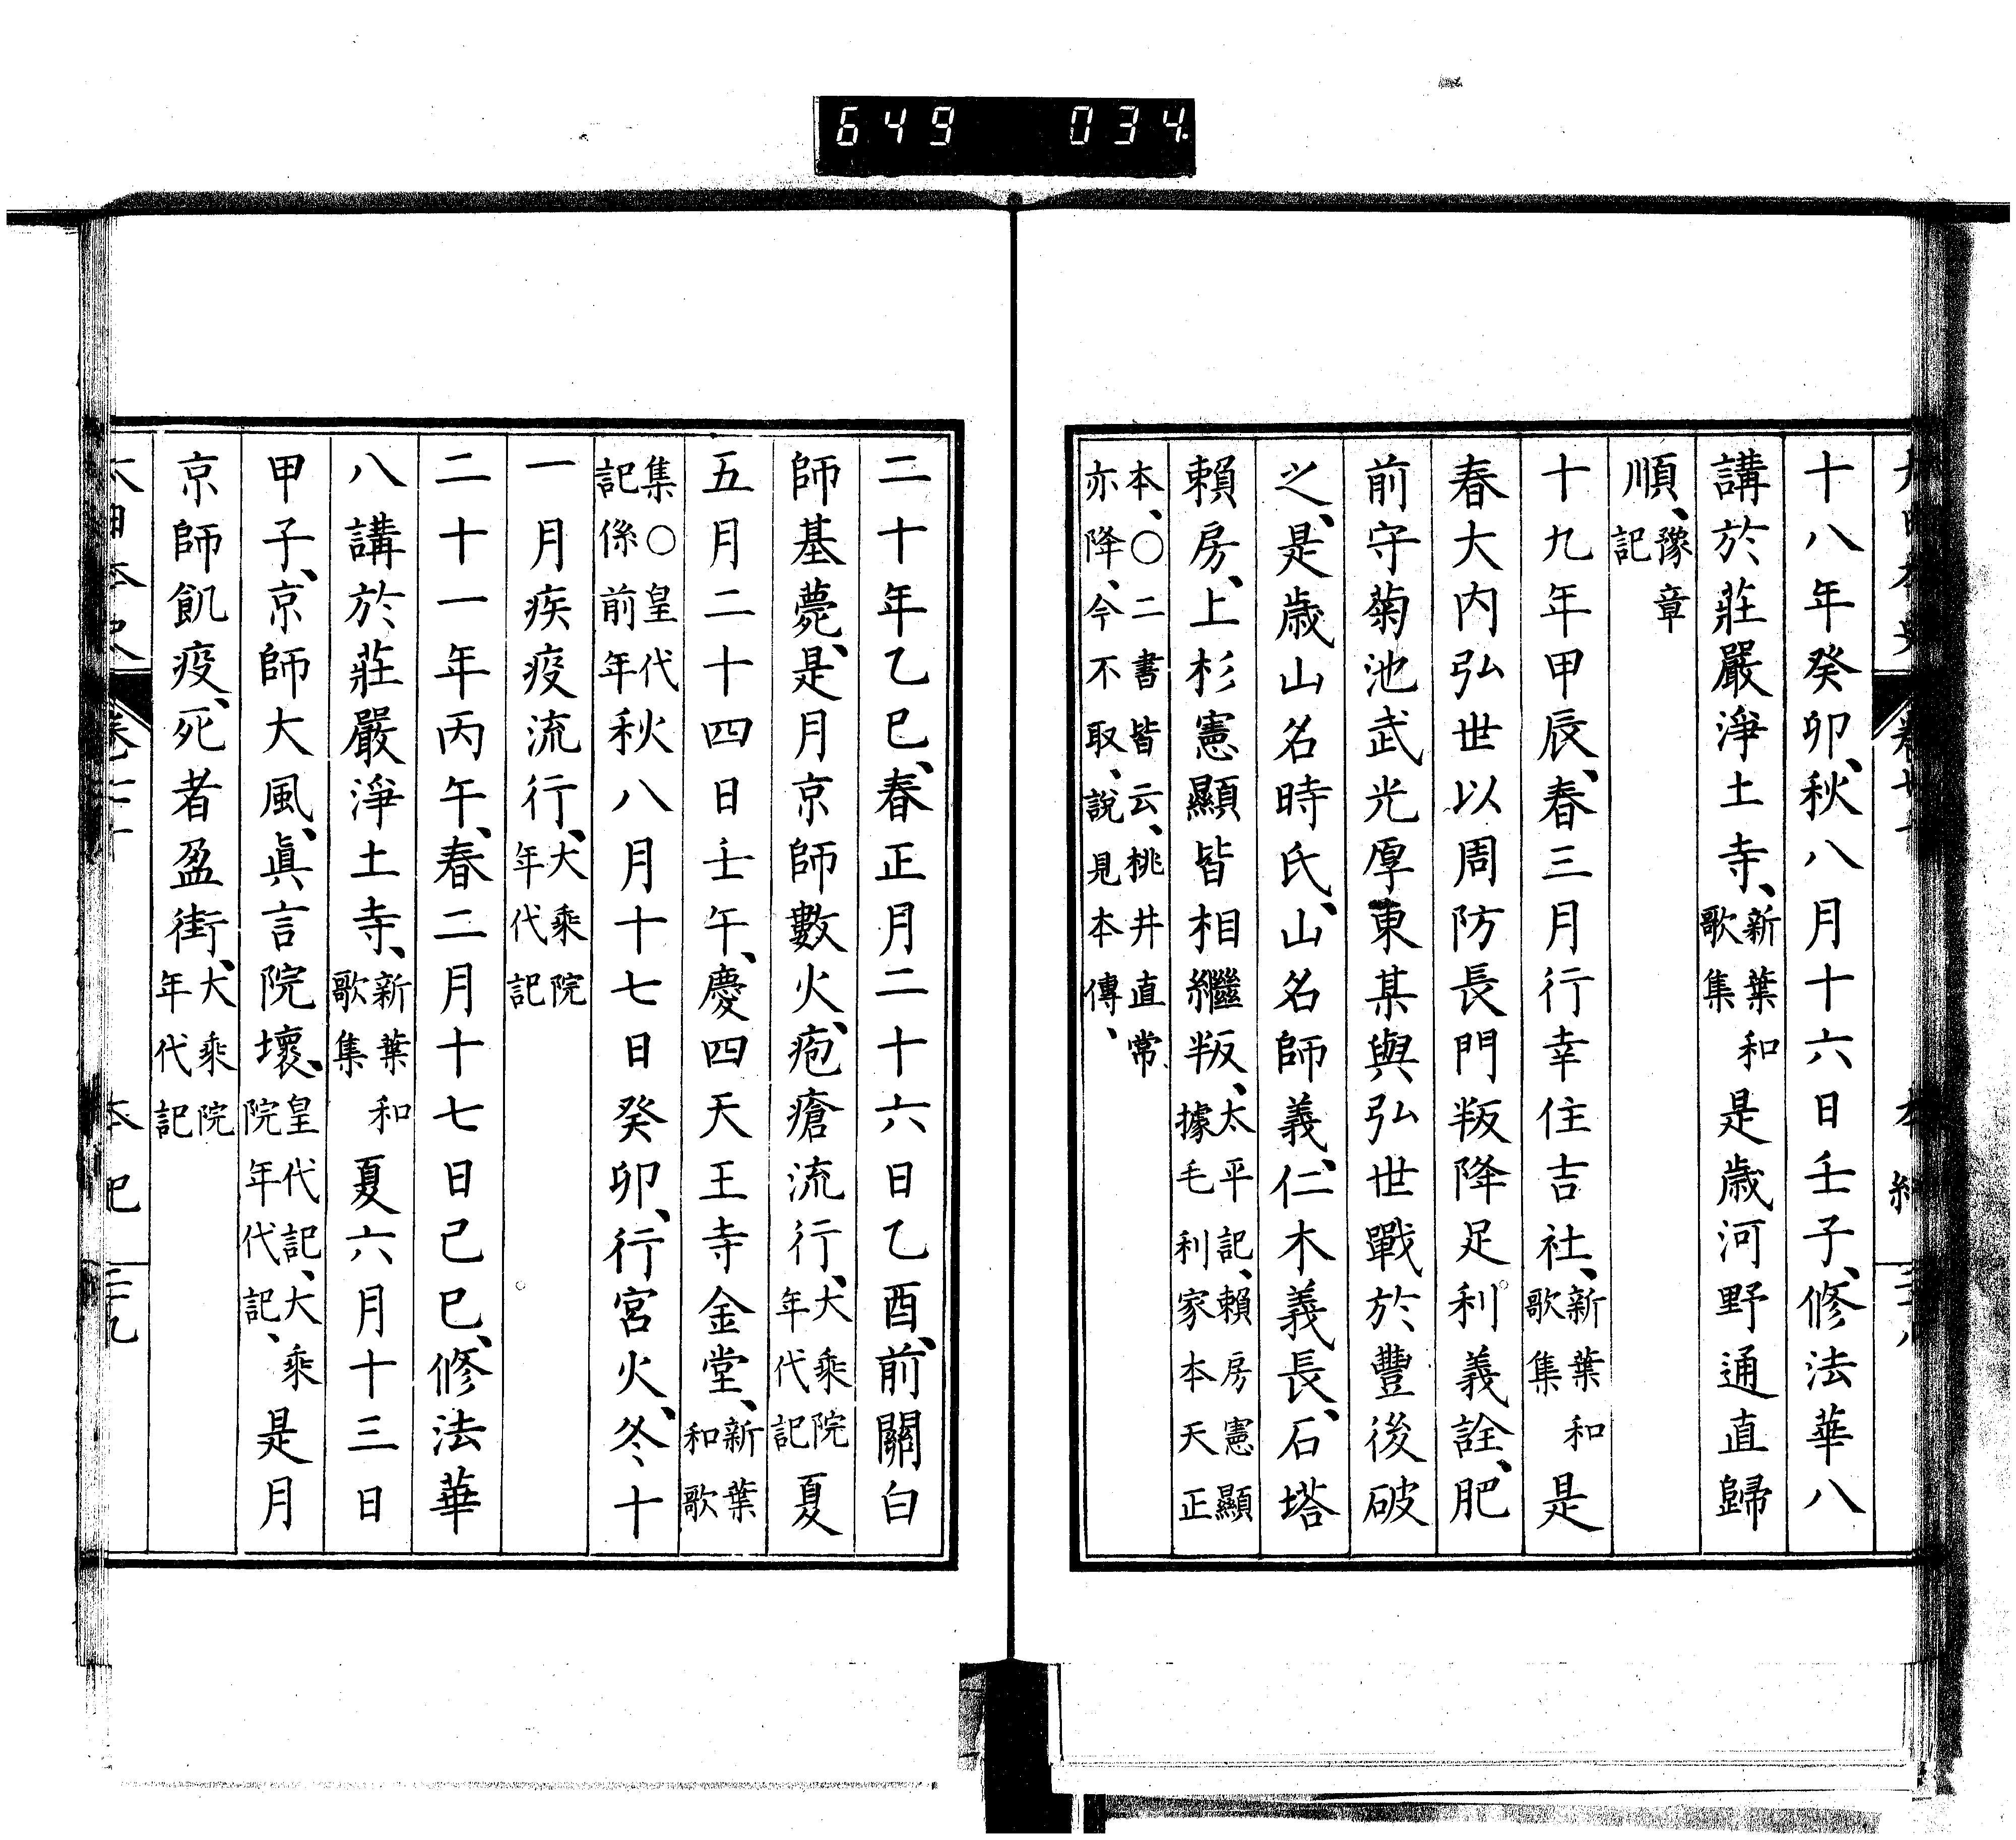 649 034
十八年癸卯、秋八月十六日壬子、修法華八
講於莊嚴淨土寺、新葉和歌集是歲河野通直歸
順、豫章記
十九年甲辰、春三月行幸住吉社、新葉和歌集是
春大内弘世以周防長門叛降足利義詮、肥
前守菊池武光厚東某與弘世戰於豐後破
之、是歲山名時氏、山名師義、仁木義長、石塔
賴房、上杉憲顯皆相繼叛、太平記、賴房憲顯據毛利家本天正
本、〇二書皆云、桃井直常亦降、今不取、説見本傳、
二十年乙巳、春正月二十六日乙酉、前關白
師基薨、是月京師數火、疱瘡流行、大乘院年代記夏
五月二十四日壬午、慶四天王寺金堂、新葉和歌
集〇皇代記係前年秋八月十七日癸卯、行宮火、冬十
一月疾疫流行、大乘院年代記
二十一年丙午、春二月十七日己巳、修法華
八講於莊嚴淨土寺、新葉和歌集夏六月十三日
甲子、京師大風、眞言院壞、皇代記、大乘院年代記、是月
京師飢疫、死者盈街、大乘院年代記
本紀 三十九